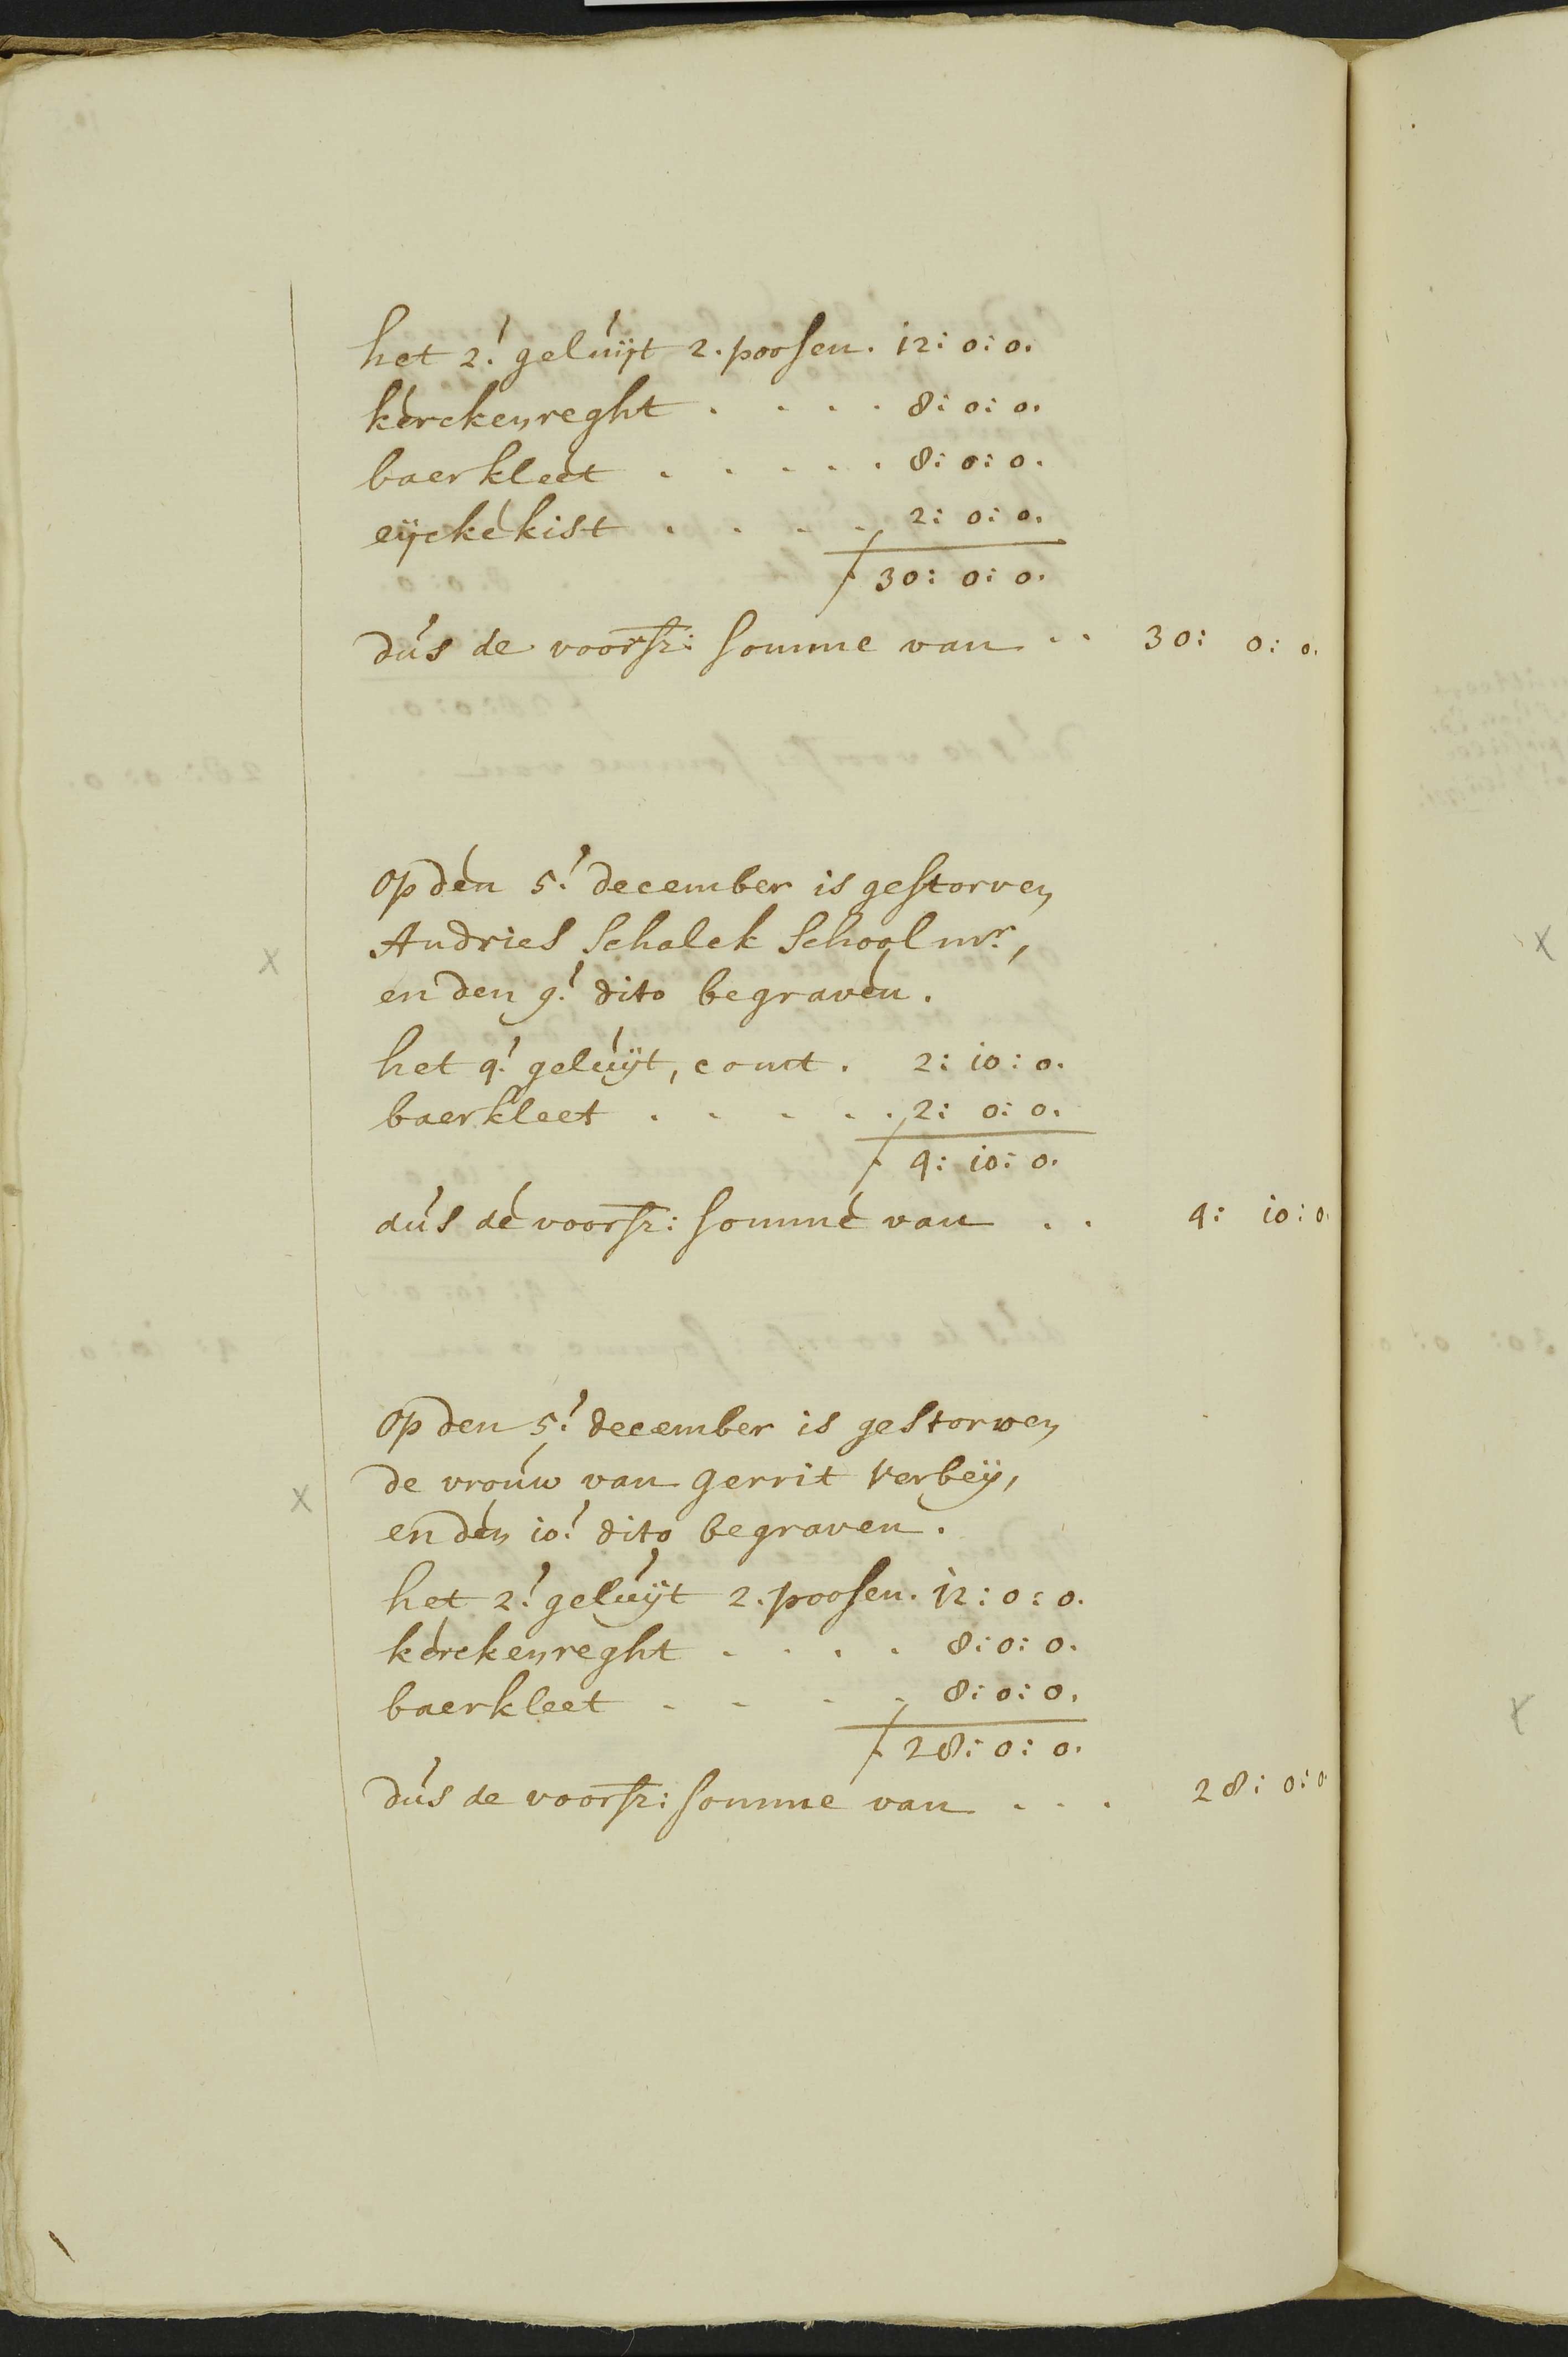 het 2.e geluijt 2. poosen. 12: 0: 0.
kerckenreght . . . . 8: 0: 0.
baerkleet . . . . . 8: 0: 0.
eijckekist . . . . 2: 0: 0.
ƒ 30: 0: 0.
dus de voorsz: somme van . . 30: 0: 0.
Op den 5.e december is gestorven
Andries Schalck Schoolmr.,
en den 9.e dito begraven.
het 4.e geluijt, comt . 2: 10: 0.
baerkleet . . . . . 2: 0: 0.
ƒ 4: 10: 0.
dus de voorsz: somme van . . 4: 10: 0.
Op den 5.e december is gestorven
de vrouw van Gerrit Verbeij,
en den 10.e dito begraven.
het 2.e geluijt 2. poosen. 12: 0: 0.
kerckenreght . . . . 8: 0: 0.
baerkleet . . . . 8: 0: 0.
ƒ 28: 0: 0.
dus de voorsz: somme van . . . 28: 0: 0